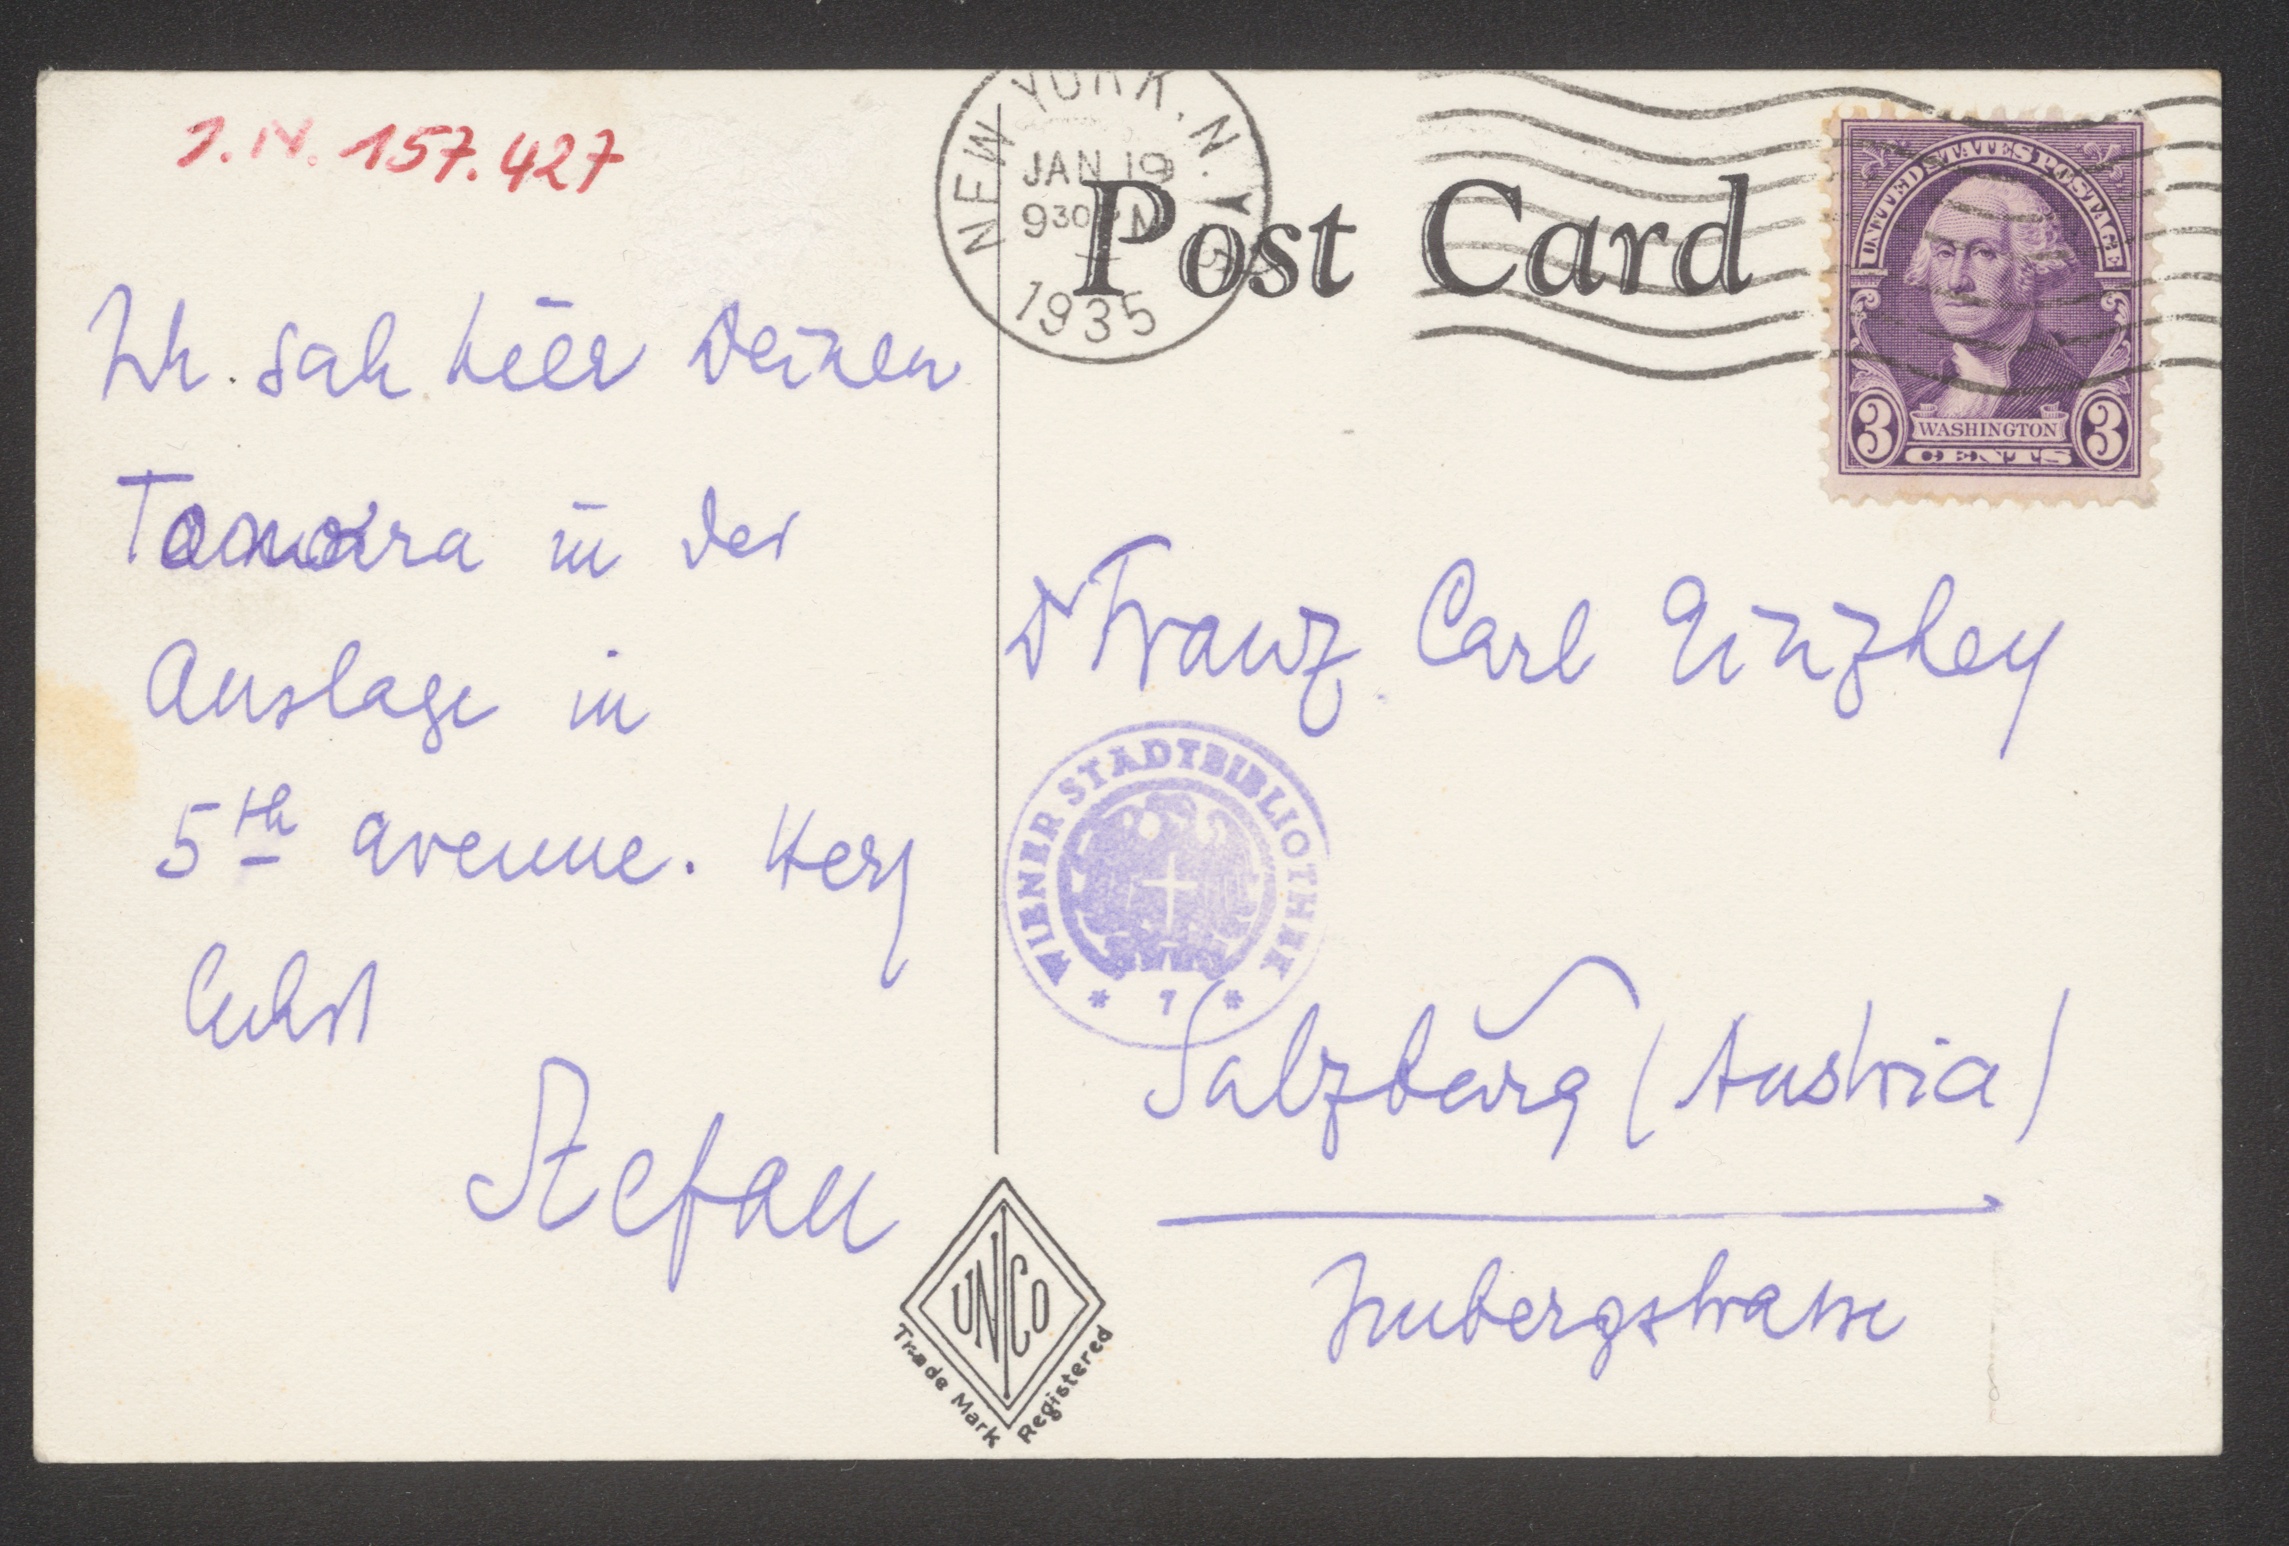 J.N. 157.427
NEW YORK, N.Y.
JAN 19
9 30 PM
1935
Post Card
UNITED STATES POSTAGE
3 WASHINGTON 3
CENTS
Ich sah hier Deinen
Tamara in der
Auslage in
5th avenue. Herz
lichst
Stefan
Dr Franz Carl Ginzkey
WIENER STADTBIBLIOTHEK
* 7 *
Salzburg (Austria)
Imbergstrasse
UNICO
Trade Mark Registered